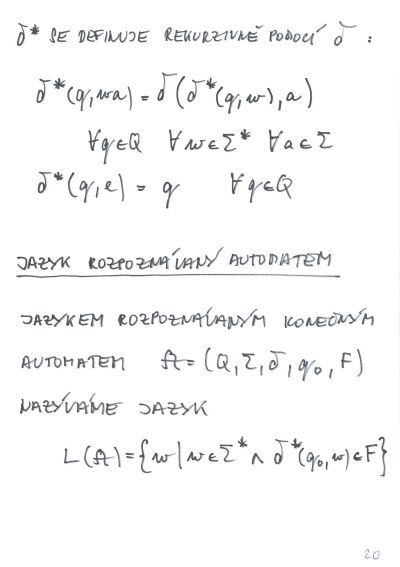 δ* SE DEFINUJE REKURZIVNĚ POMOCÍ δ :
δ*(q,wa) = δ(δ*(q,w),a)
∀q∈Q ∀w∈Σ* ∀a∈Σ
δ*(q,e) = q ∀q∈Q
JAZYK ROZPOZNÁVANÝ AUTOMATEM
JAZYKEM ROZPOZNÁVANÝM KONEČNÝM
AUTOMATEM A = (Q,Σ,δ,q₀,F)
NAZÝVÁME JAZYK
L(A) = {w | w∈Σ* ∧ δ*(q₀,w)∈F}
20